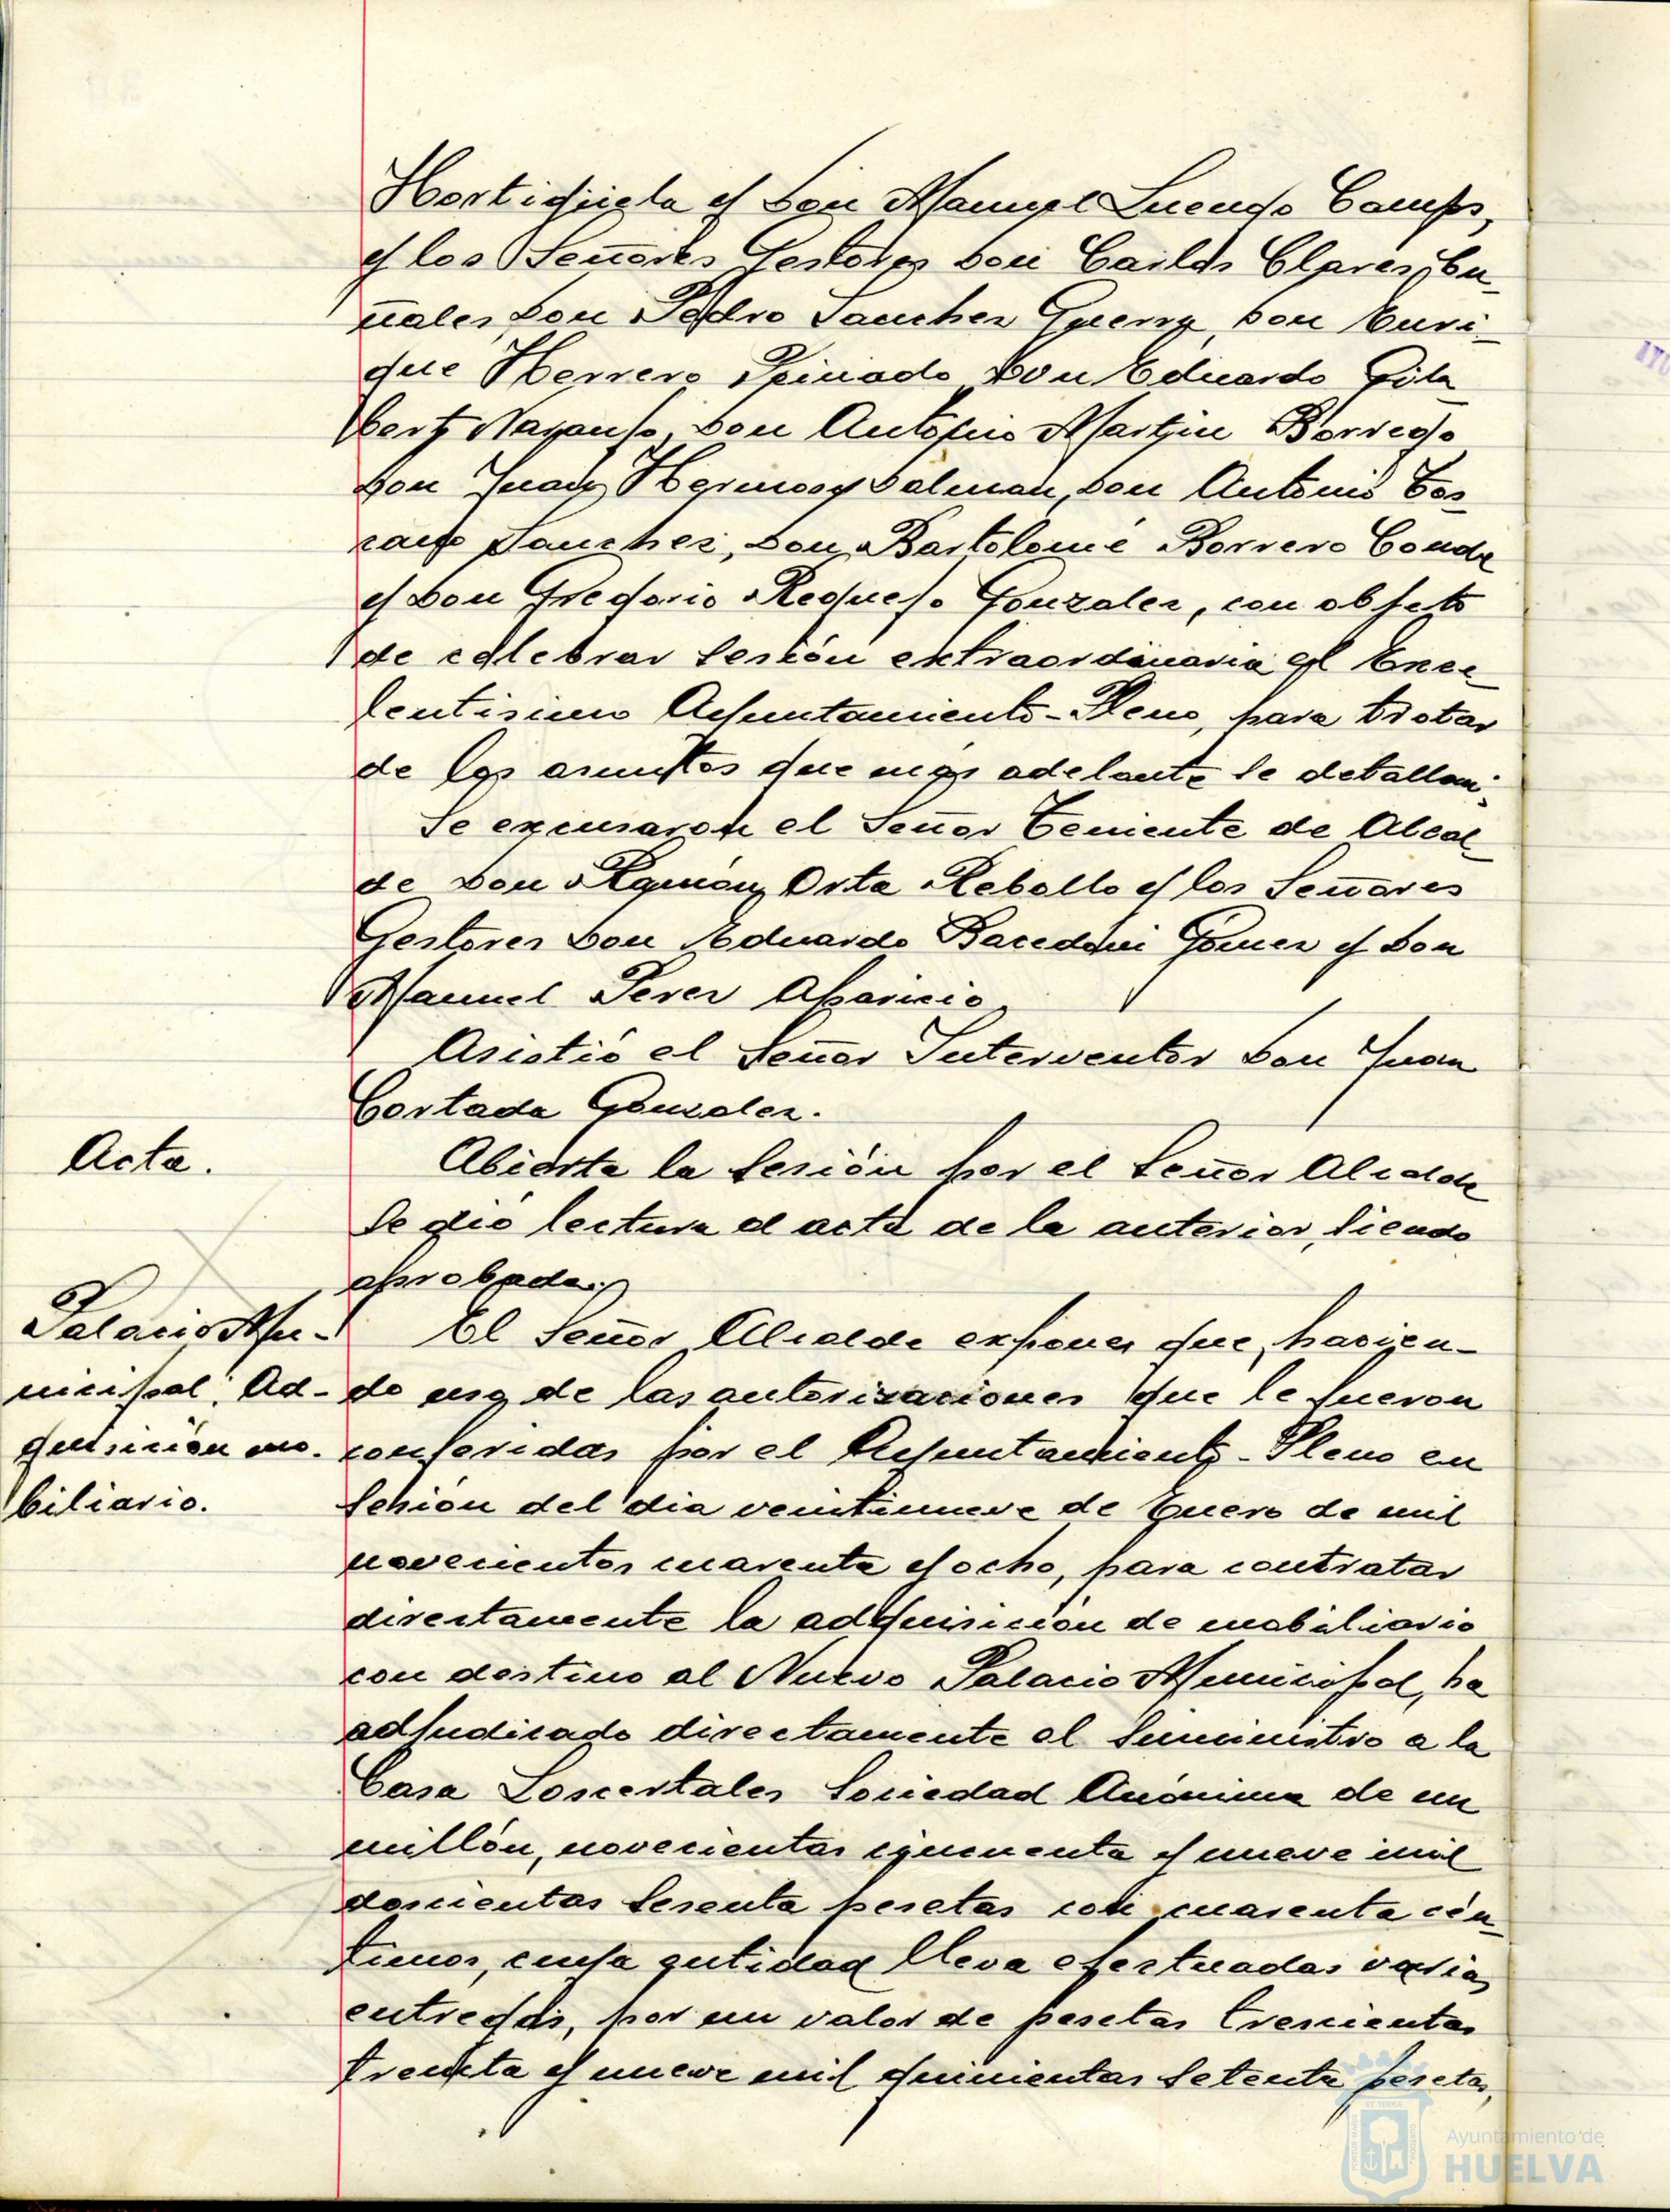 Hortigüela y Don Manuel Luengo Camps,
y los Señores Gestores Don Carlos Clares Bu-
ñales, Don Pedro Sanchez Guerra, Don Enri-
que Herrero Peinado, Don Eduardo Gila
bert Naranjo, Don Antonio Martin Borrego
Don Juan Hermosa Dalman, Don Antonio Tos-
cano Sanchez, Don Bartolomé Borrero Conde
y Don Gregorio Requejo Gonzalez, con objeto
de celebrar sesión extraordinaria el Exce-
lentisimo Ayuntamiento-Pleno, para tratar
de los asuntos que más adelante se detallan.
Se excusaron el Señor Teniente de Alcal-
de Don Ramón Orta Rebollo y los Señores
Gestores Don Eduardo Gómez y Don
Manuel Perez Aparicio.
Asistió el Señor Interventor Don Juan
Cortada Gonzalez.
Acta.
Abierta la sesión por el Señor Alcalde
se dió lectura al acta de la anterior, siendo
aprobada.
Palacio Mu-
nicipal. Ad-
quisición mo-
biliario.
El Señor Alcalde expone que, hacien-
do uso de las autorizaciones que le fueron
conferidas por el Ayuntamiento-Pleno en
sesión del dia veintinueve de Enero de mil
novecientos cuarenta y ocho, para contratar
directamente la adquisición de mobiliario
con destino al Nuevo Palacio Municipal, ha
adjudicado directamente el suministro a la
Casa Loscertales Sociedad Anónima de un
millón, novecientas cincuenta y nueve mil
doscientas sesenta pesetas con cuarenta cén-
timos, cuya entidad lleva efectuadas varias
entregas, por un valor de pesetas trescientas
treinta y nueve mil quinientas setenta pesetas,
Ayuntamiento de
HUELVA